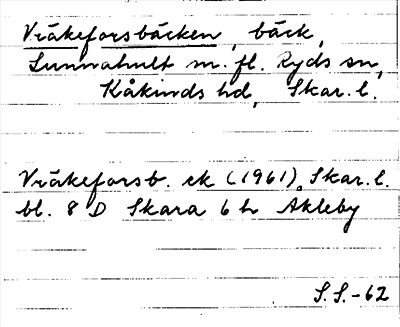 Vråkeforsbäcken, bäck,
Sunnahult m. fl. Ryds sn,
Kåkinds hd, Skar. l.
Vråkeforsb. ek (1961), Skar. l.
bl. 8 D Skara 6 h Akleby
S.S.-62